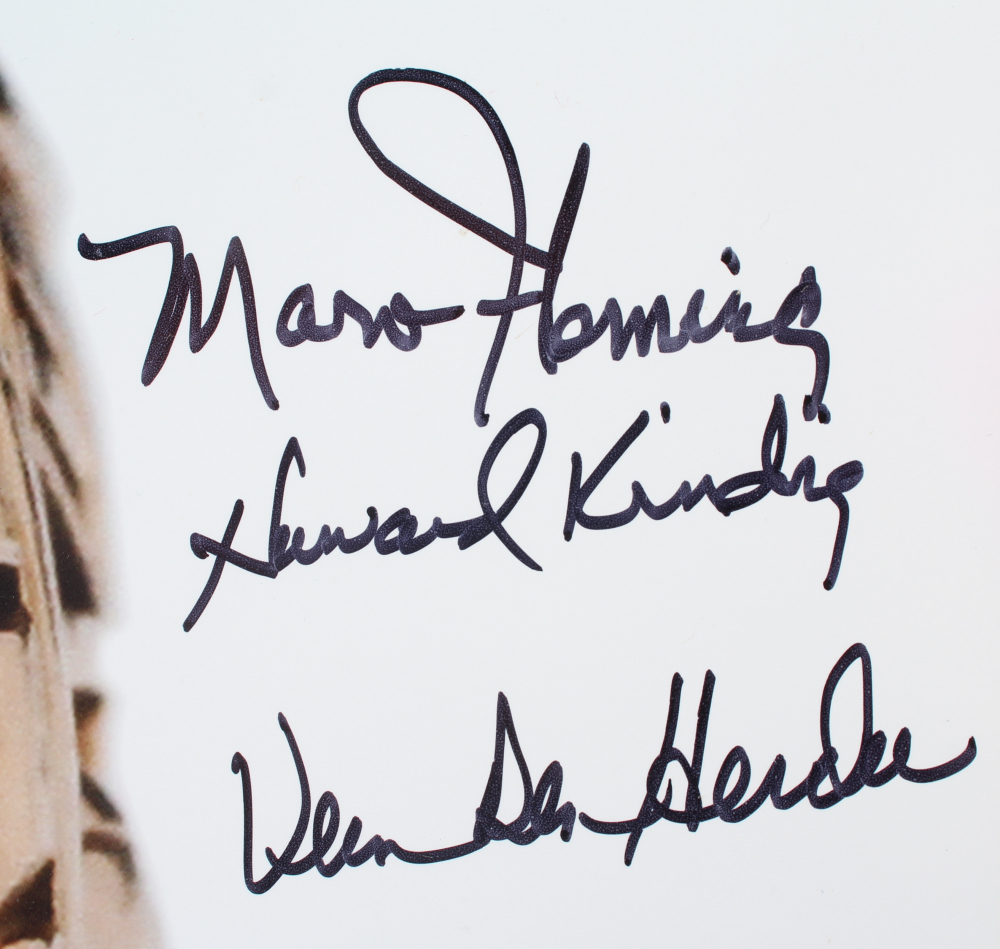 Marv Fleming
Howard Kindig
Vern Den Herder